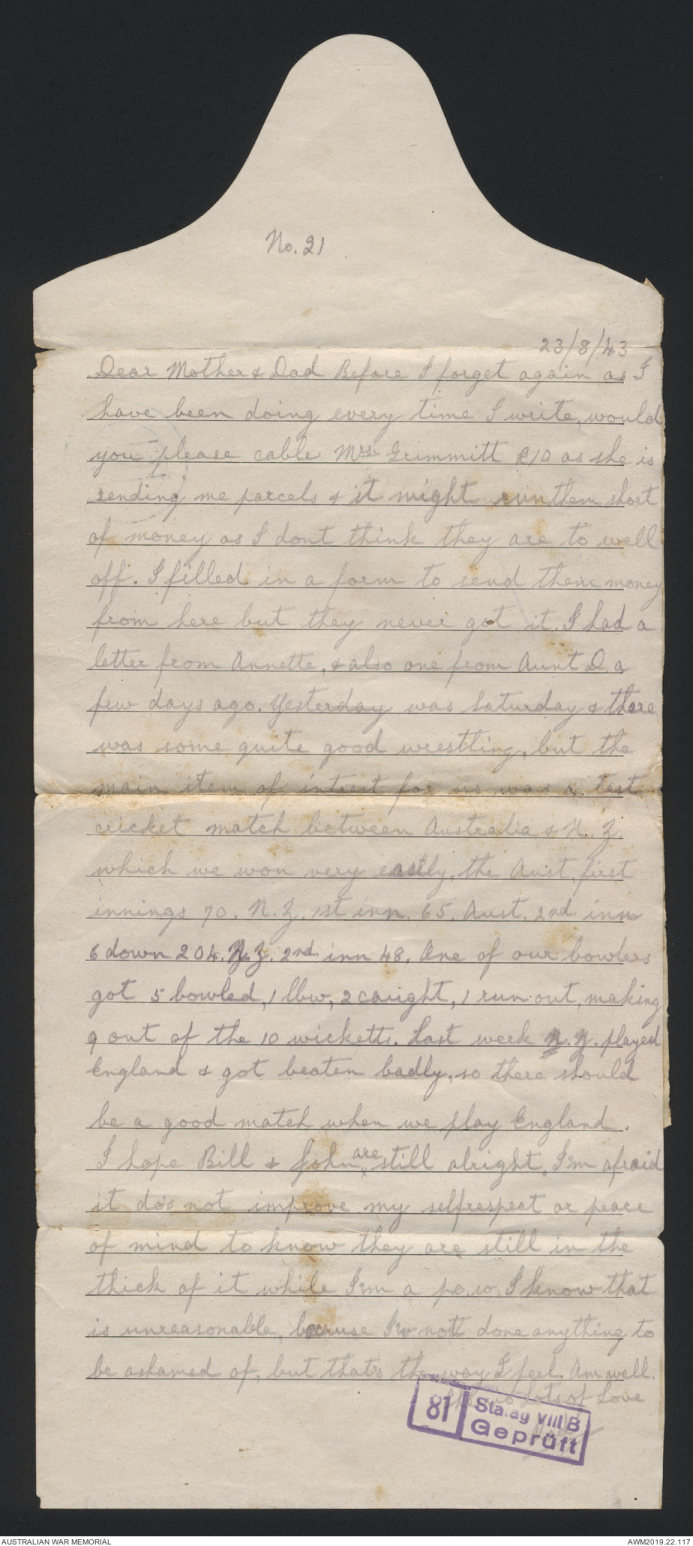 No. 21
23/8/43
Dear Mother & Dad Before I forget again as I
have been doing every time I write, would
you please cable Mrs Grimmitt £10 as she is
sending me parcels & it might run them short
of money as I dont think they are to well
off. I filled in a form to send them money
from here but they never got it. I had a
letter from Annette, & also one from Aunt D. a
few days ago. Yesterday was Saturday & there
was some quite good wrestling, but the
main item of intrest for us was a test
cricket match between Australia & N.Z.
which we won very easily, the Aust. first
innings 70. N.Z. 1st inn. 65. Aust. 2nd inn
6 down 204. N.Z. 2nd inn 48. One of our bowlers
got 5 bowled, 1 lbw, 2 caught, 1 run out, making
9 out of the 10 wicketts. Last week N.Z. played
England & got beaten badly, so there should
be a good match when we play England.
I hope Bill & John are still alright, I'm afraid
it do's not improve my selfrespect or peace
of mind to know they are still in the
thick of it while I'm a p.o.w. I know that
is unreasonable, because I'v not done anything to
be ashamed of, but that's the way I feel. Am well.
Lots of Love
81 Stalag VIII B
Geprüft
AUSTRALIAN WAR MEMORIAL
AWM2019.22.117